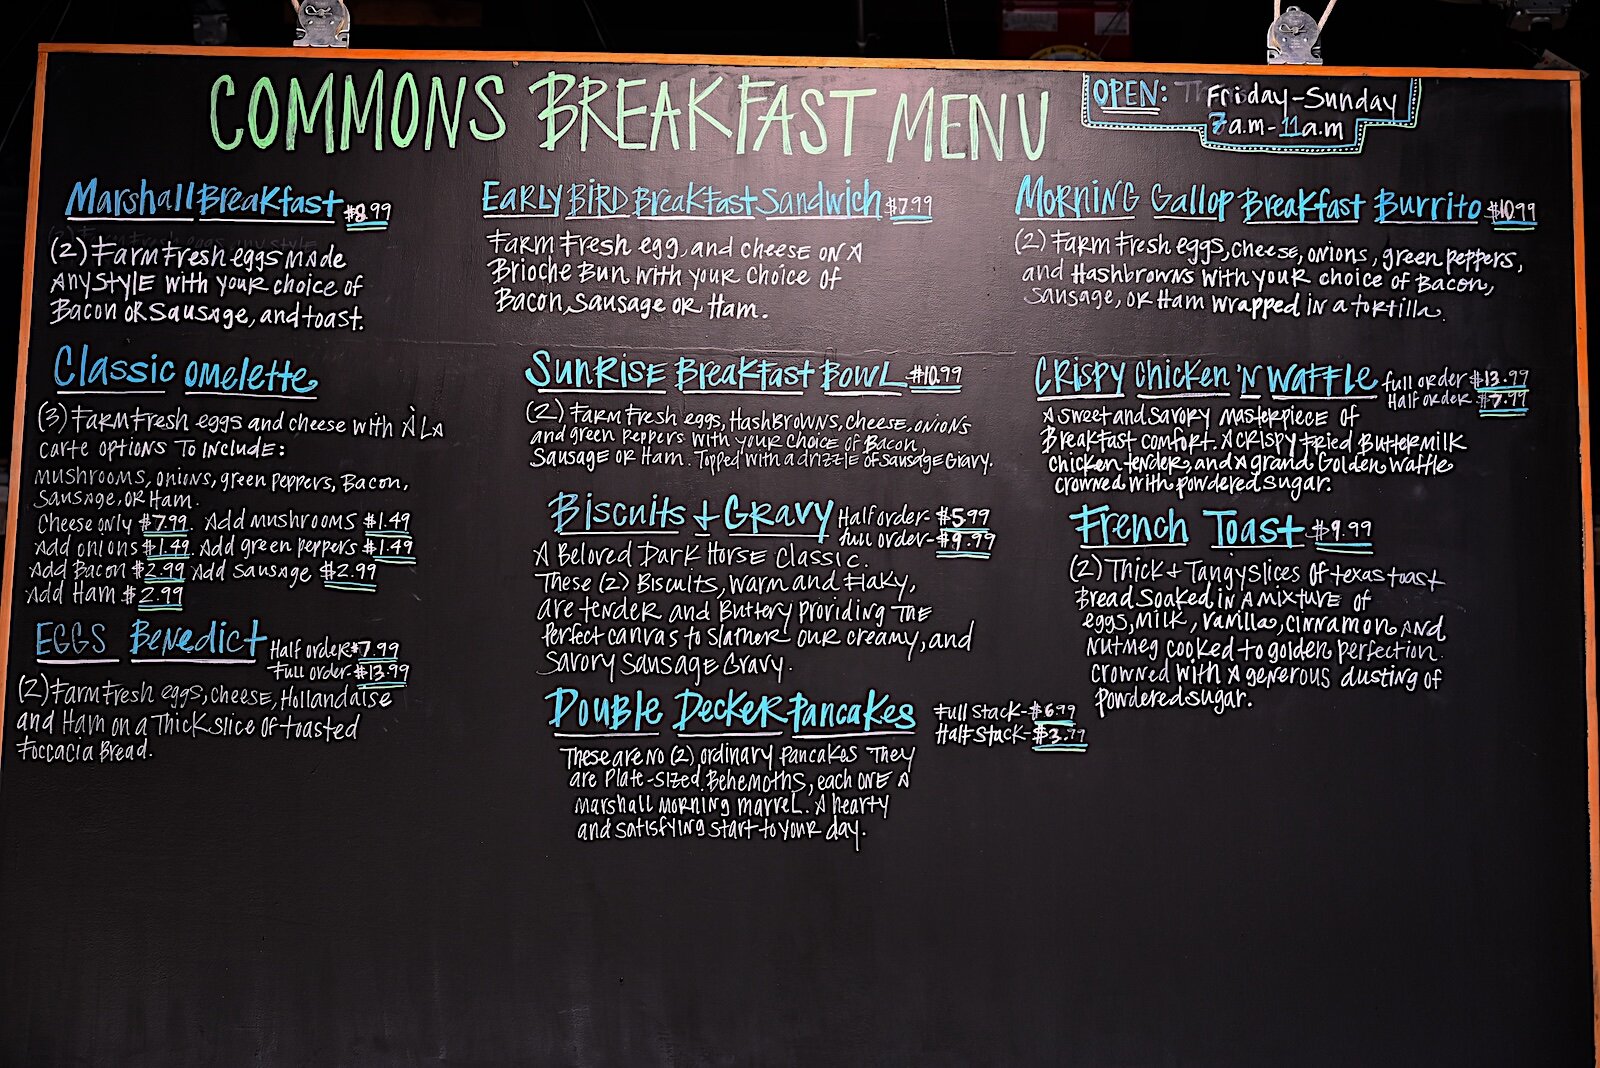 COMMONS BREAKFAST MENU
OPEN: Friday-Sunday
7a.m-11a.m
Marshall Breakfast $8.99
(2) Farm Fresh eggs made
any style with your choice of
Bacon or Sausage, and toast.
Classic omelette
(3) Farm Fresh eggs and cheese with À La
carte options to include:
mushrooms, onions, green peppers, Bacon,
Sausage, or Ham.
Cheese only $7.99 Add mushrooms $1.49
Add onions $1.49 Add green peppers $1.49
Add Bacon $2.99 Add sausage $2.99
Add Ham $2.99
EGGS Benedict Half order $7.99
Full order-$13.99
(2) Farm Fresh eggs, cheese, Hollandaise
and Ham on a Thick slice of toasted
Foccacia Bread.
Early Bird Breakfast Sandwich $7.99
Farm Fresh egg, and cheese on a
Brioche Bun with your choice of
Bacon, Sausage or Ham.
Sunrise Breakfast Bowl $10.99
(2) Farm Fresh eggs, Hashbrowns, cheese, onions
and green peppers with your choice of Bacon,
Sausage or Ham. Topped with a drizzle of Sausage Gravy.
Biscuits + Gravy Half order- $5.99
full order- $9.99
A Beloved Dark Horse Classic.
These (2) Biscuits, warm and Flaky,
are tender and Buttery providing the
perfect canvas to slather our creamy, and
savory Sausage Gravy.
Double Decker Pancakes Full Stack-$6.99
Half Stack-$3.99
These are no (2) ordinary pancakes They
are Plate-sized Behemoths, each one a
marshall morning marvel. A hearty
and satisfying start to your day.
Morning Gallop Breakfast Burrito $10.99
(2) Farm Fresh eggs, cheese, onions, green peppers,
and Hashbrowns with your choice of Bacon,
Sausage, or Ham wrapped in a tortilla.
Crispy Chicken 'N Waffle full order $13.99
Half order $7.99
A sweet and savory masterpiece of
Breakfast comfort. A crispy fried Buttermilk
chicken tender, and a grand Golden waffle
crowned with powdered sugar.
French Toast $9.99
(2) Thick + Tangy slices of texas toast
Bread soaked in a mixture of
eggs, milk, vanilla, cinnamon and
Nutmeg cooked to golden perfection.
Crowned with a generous dusting of
powdered sugar.